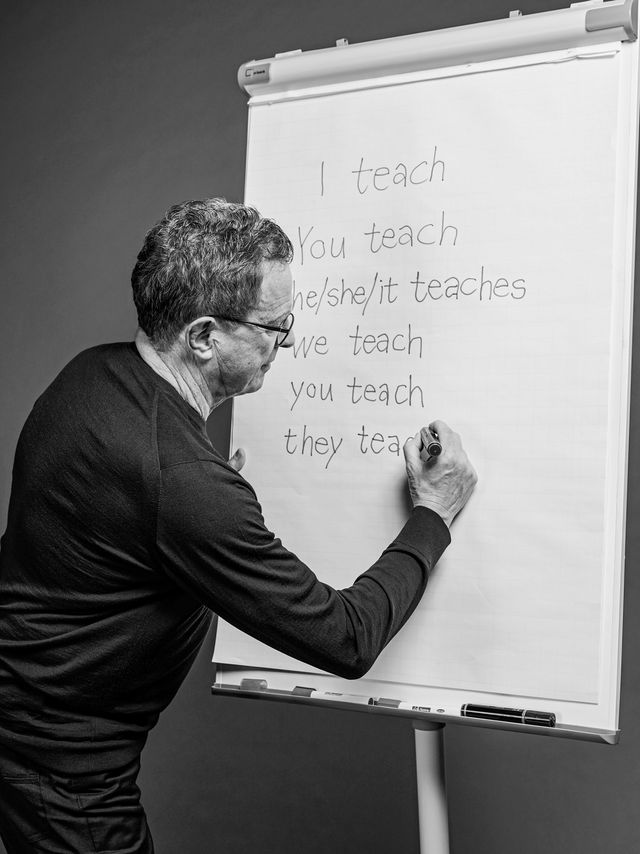 I teach
You teach
he/she/it teaches
we teach
you teach
they teac